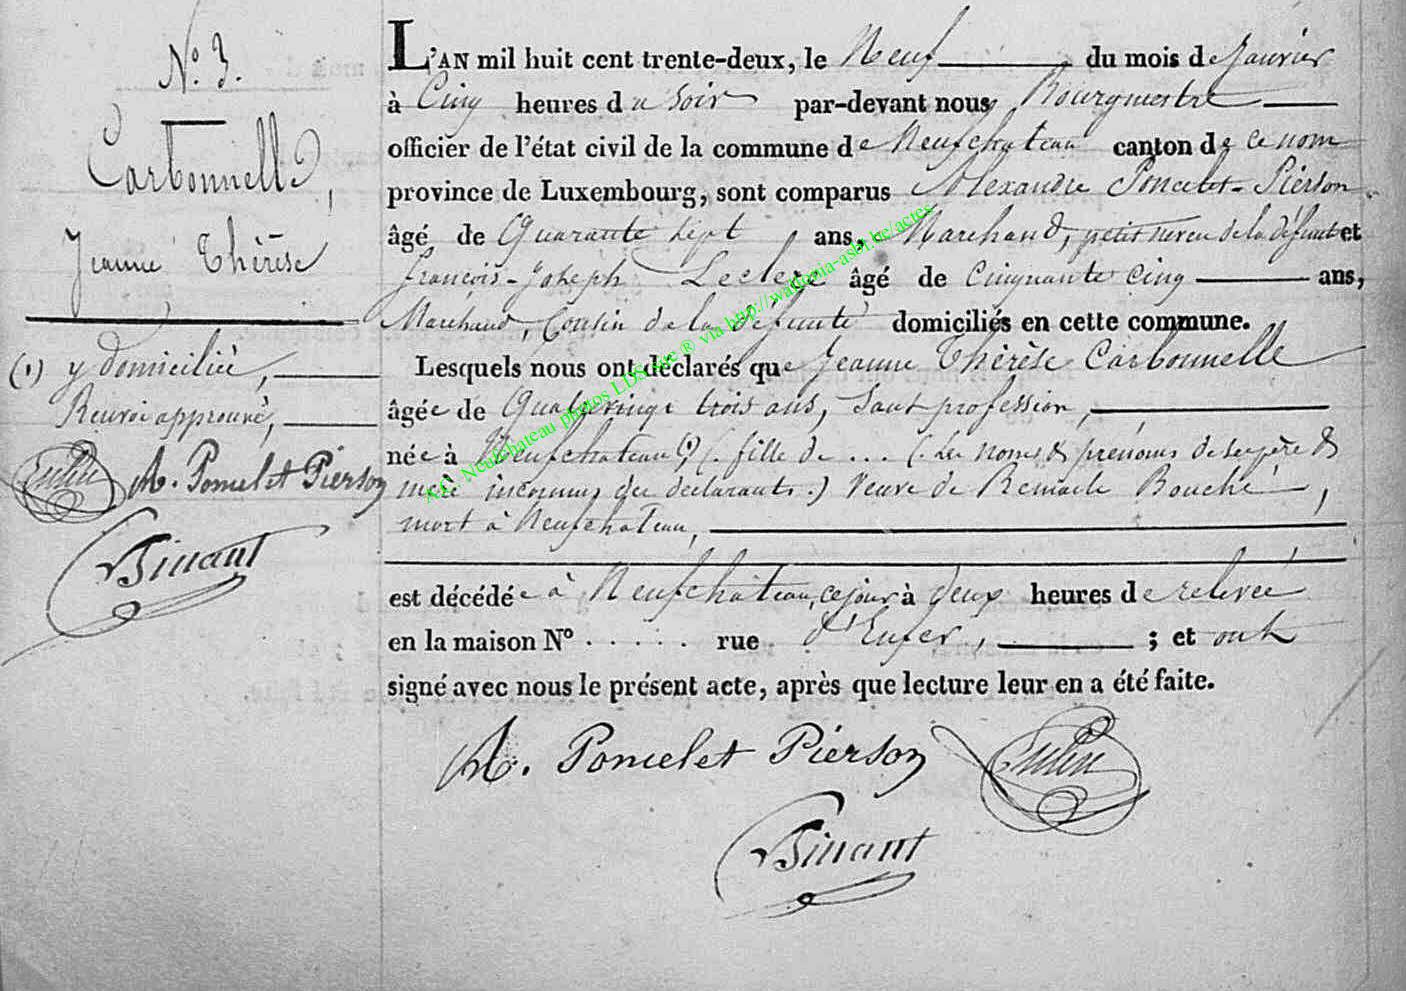 N.º 3.
Carbonnelle,
Jeanne Thérèse
(1) y domiciliée,
Renvoi approuvé,
A. Poncelet Pierson
Binant
L'AN mil huit cent trente-deux, le Neuf du mois de Janvier
à Cinq heures du soir par-devant nous Bourgmestre
officier de l'état civil de la commune de Neufchateau canton de ce nom
province de Luxembourg, sont comparus Alexandre Poncelet-Pierson
âgé de Quarante sept ans, Marchand, petit neveu de la défunte et
françois-Joseph Leclere âgé de Cinquante Cinq ans,
Marchand, Cousin de la défunte domiciliés en cette commune.
Lesquels nous ont déclarés que Jeanne Thérèse Carbonnelle
âgée de Quatrevingt trois ans, Sans profession,
née à Neufchateau (1) (. fille de ... (. Les noms & prénoms de ses père &
mère inconnus des déclarants.) Veuve de Remacle Bouché,
mort à Neufchateau,
est décédée à Neufchâteau, ce jour à Deux heures de relevée
en la maison Nº . . . . . rue d'Enfer, ; et ont
signé avec nous le présent acte, après que lecture leur en a été faite.
A. Poncelet Pierson
Binant
AC Neufchateau photos LDS site ® via http://wallonia-asbl.be/actes